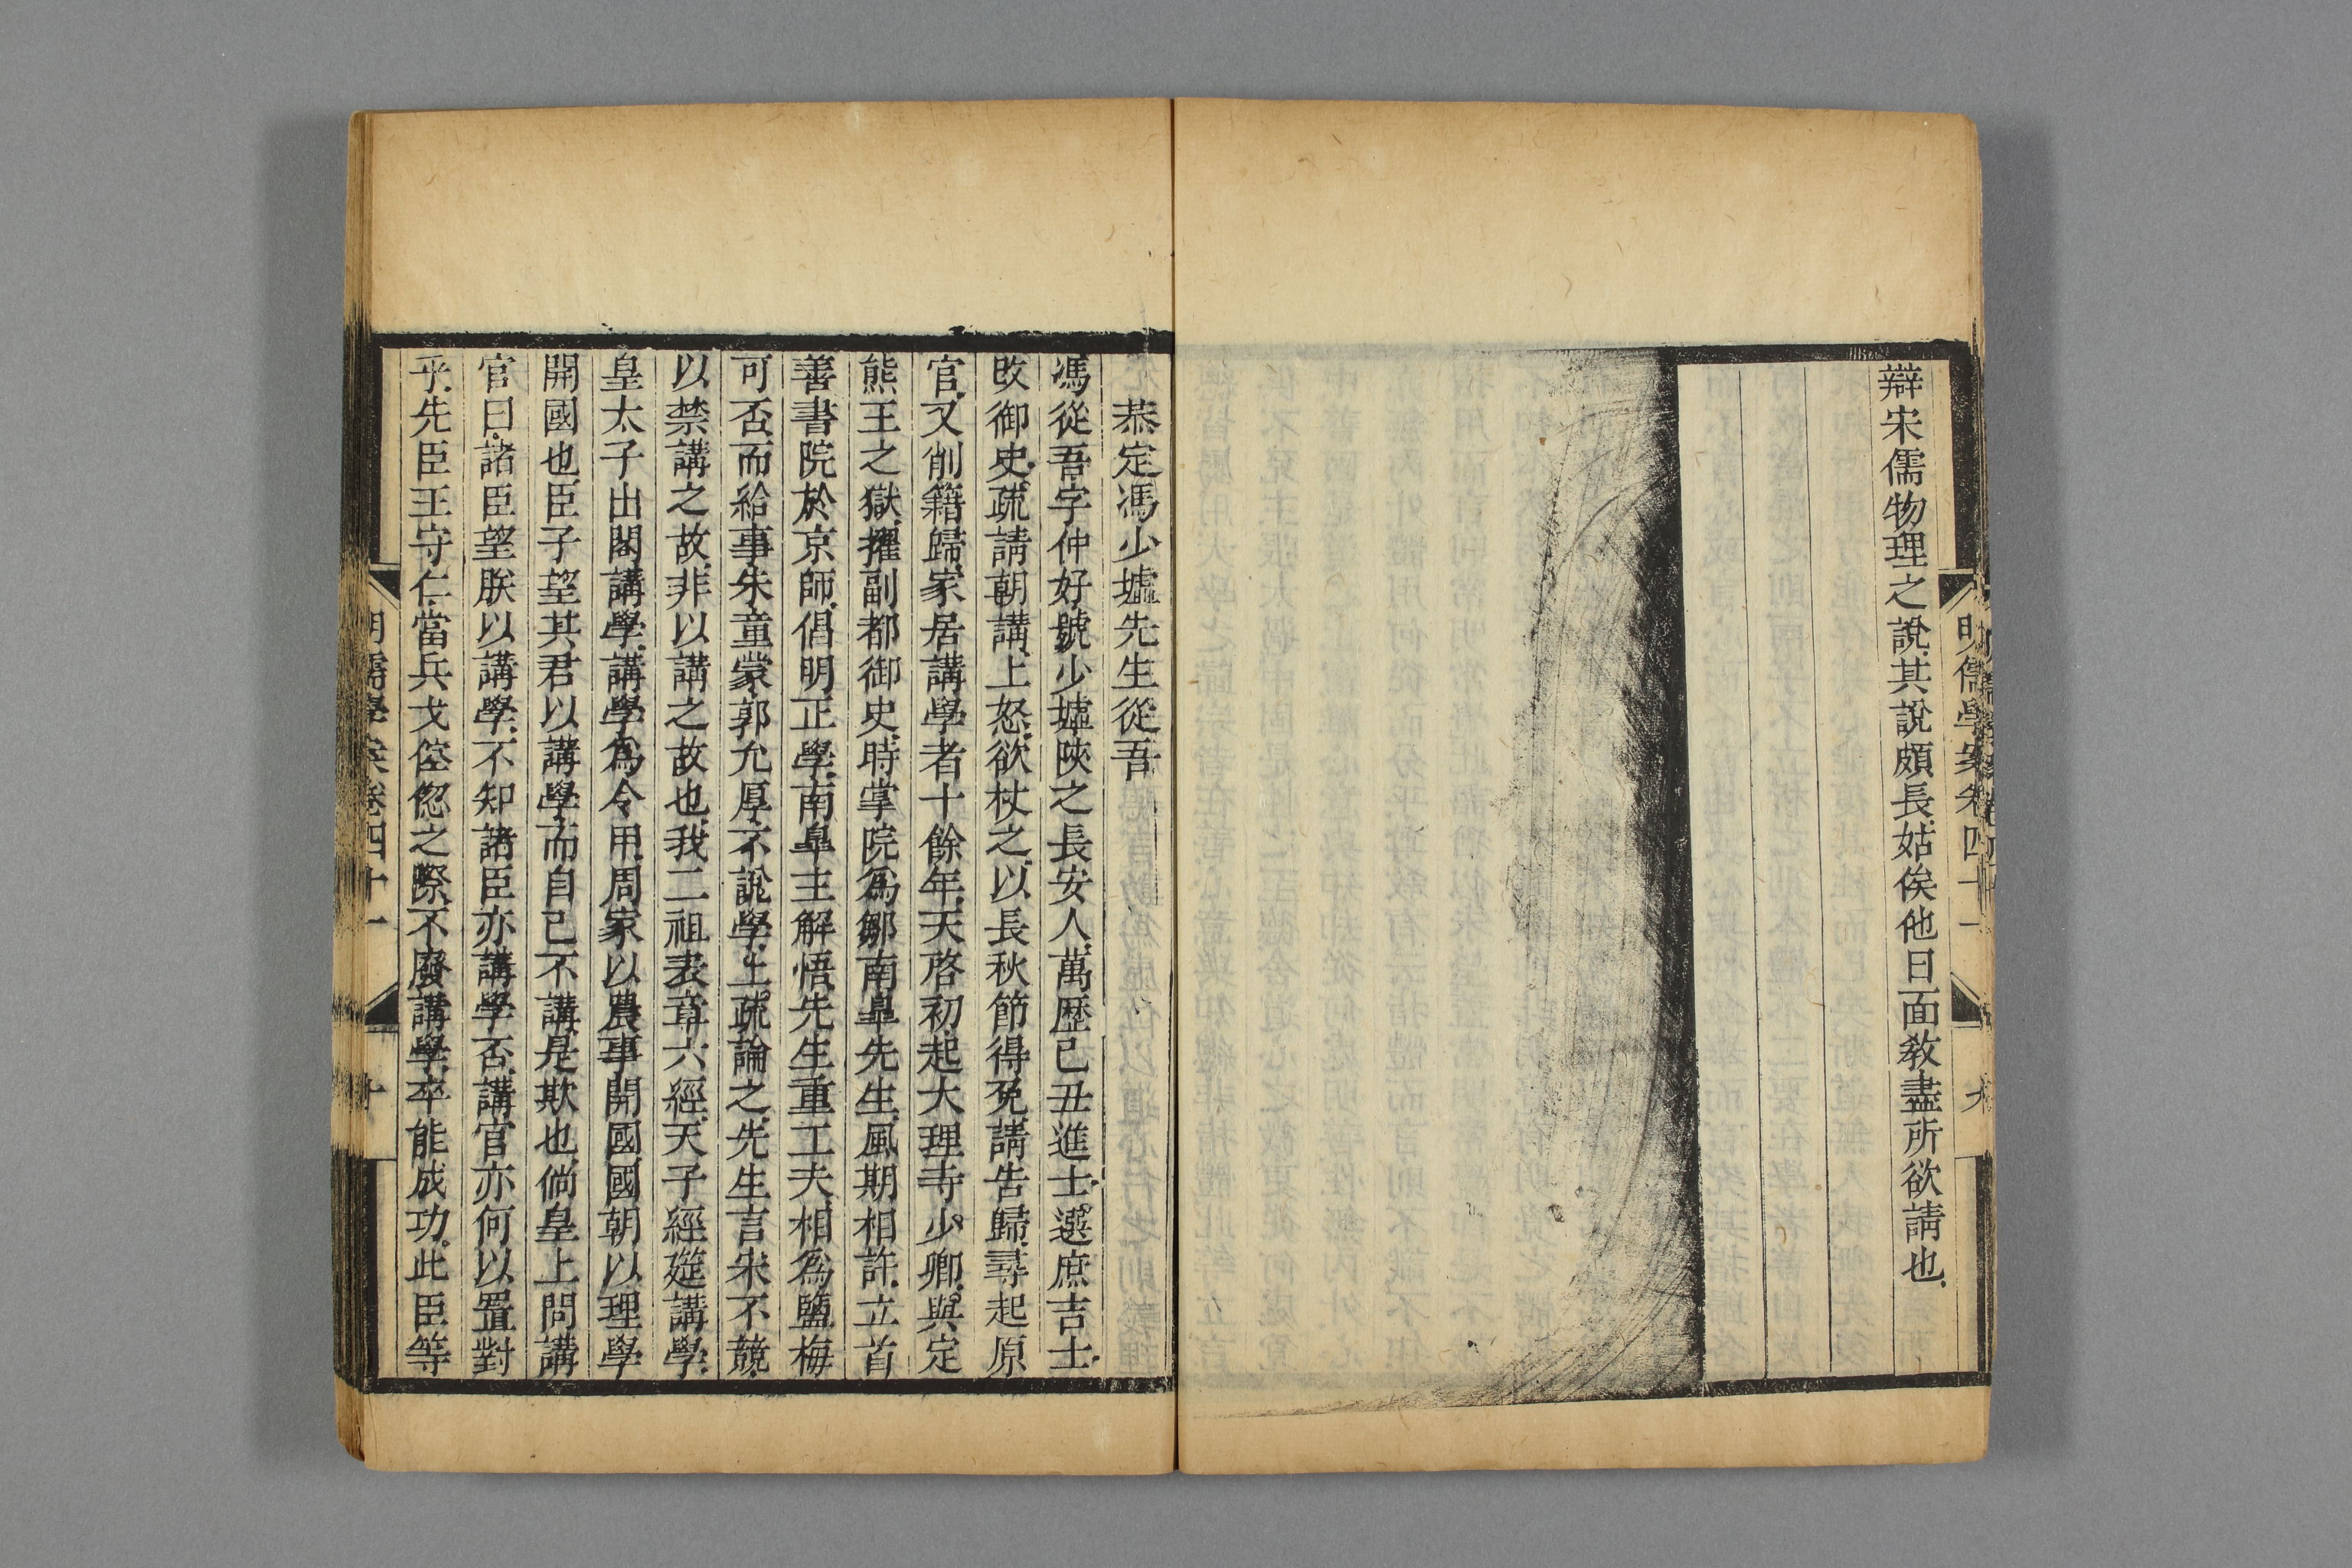 明儒學案卷四十一
九
辯宋儒物理之說.其說頗長.姑俟他日面敎盡所欲請也.
恭定馮少墟先生從吾
馮從吾.字仲好.號少墟.陝之長安人.萬歷己丑進士.選庶吉士.
改御史.疏請朝講.上怒.欲杖之.以長秋節得免.請告歸.尋起原
官.又削籍歸.家居講學者十餘年.天啓初.起大理寺少卿.與定
熊王之獄.擢副都御史.時掌院爲鄒南臯先生.風期相許.立首
善書院於京師.倡明正學.南臯主解悟.先生重工夫.相爲鹽梅
可否.而給事朱童蒙郭允厚不說學.上疏論之.先生言宋不競.
以禁講之故.非以講之故也.我二祖表章六經.天子經筵講學.
皇太子出閣講學.講學爲令用.周家以農事開國.國朝以理學
開國也.臣子望其君以講學.而自己不講.是欺也.倘皇上問講
官曰.諸臣望朕以講學.不知諸臣亦講學否.講官亦何以置對
乎.先臣王守仁.當兵戈倥傯之際.不廢講學.卒能成功.此臣等
明儒學案卷四十一
十